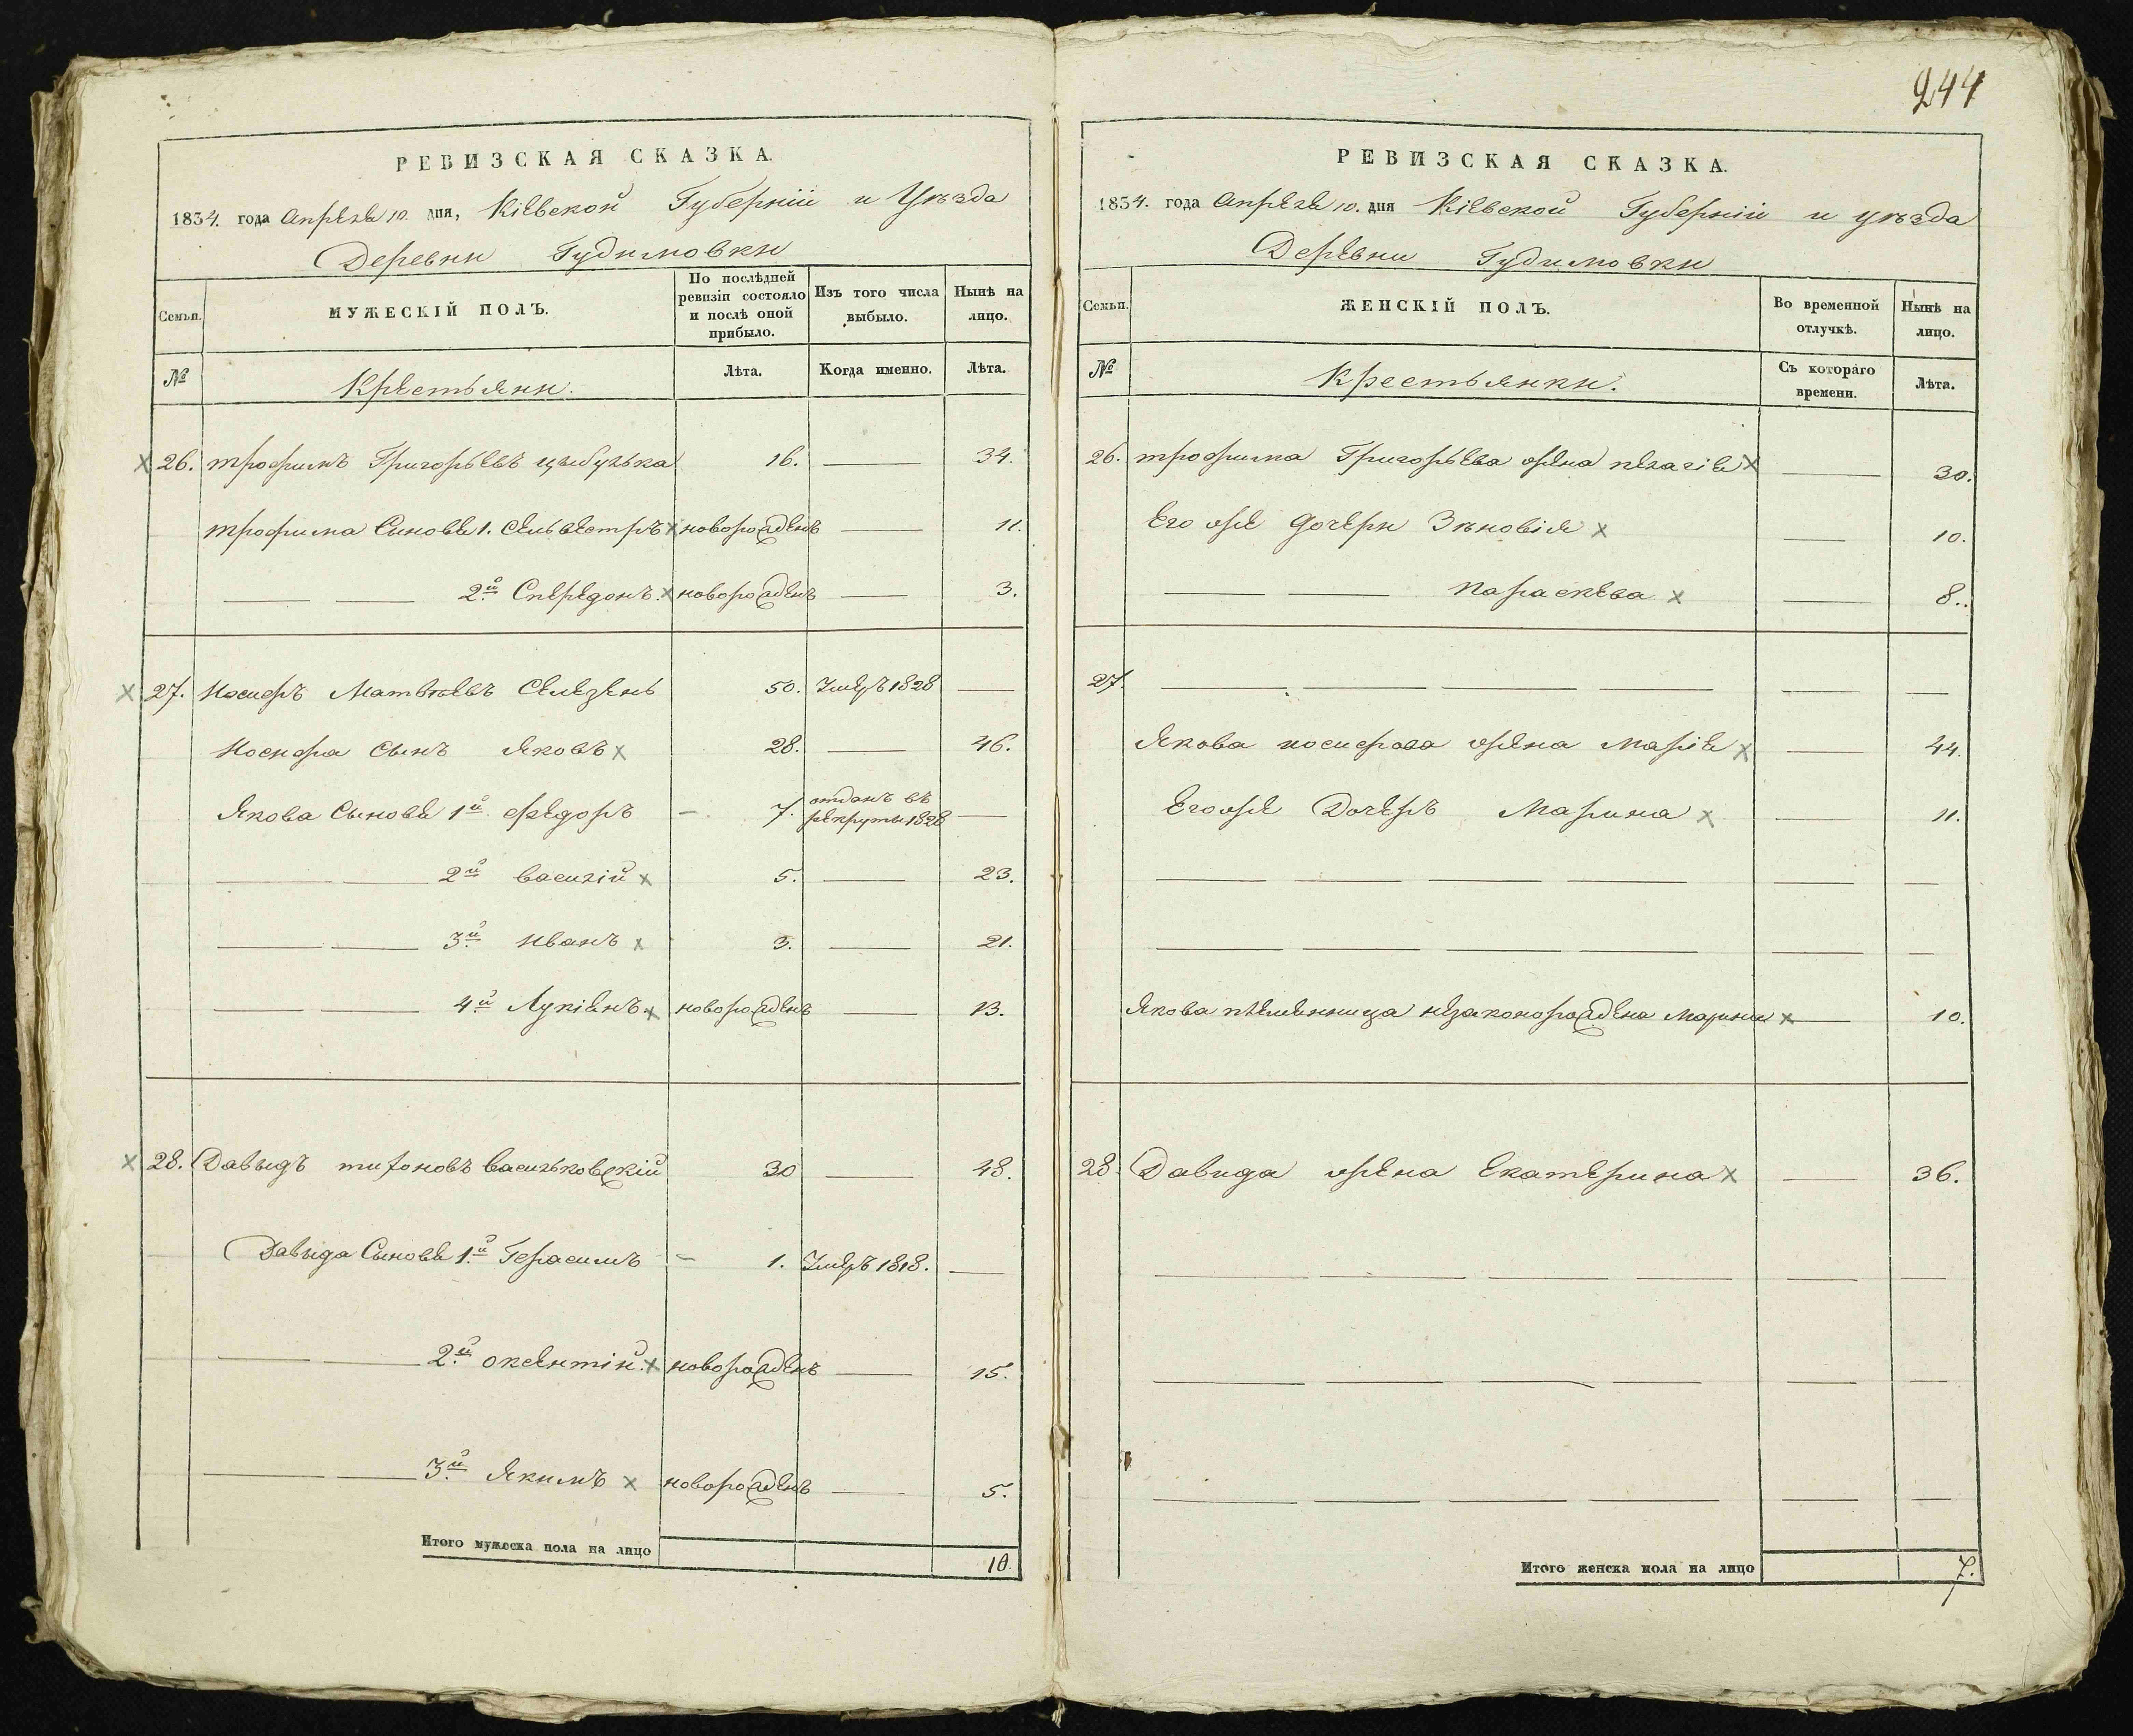 244
РЕВИЗСКАЯ СКАЗКА.
1834. года Апреля 10. дня, Кіевской Губерніи и Уезда
Деревни Гудимовки
Семьи.
МУЖЕСКІЙ ПОЛЪ.
По послѣдней ревизіи состояло и послѣ оной прибыло.
Изъ того числа выбыло.
Нынѣ на лицо.
№
Крестьяни.
Лѣта.
Когда именно.
Лѣта.
26. трофимъ Григорьевъ цыбулька 16. — 34.
трофима Сыновья 1. Сельвестръ новорожденъ — 11.
— — 2й Спередонъ новорожденъ — 3.
27. Иосифъ Матвѣевъ Селезень 50. Умеръ 1828 —
Иосифа Сынъ Яковъ 28. — 46.
Якова Сыновья 1й федоръ — 7. отданъ въ рекруты 1828 —
— — 2й василій 5. — 23.
— — 3й Иванъ 3. — 21.
— — 4й Лукіянъ новорожденъ — 13.
28. Давыдъ тихоновъ васильковскій 30 — 48.
Давыда Сыновья 1й Герасимъ — 1. Умеръ 1818. —
— — 2й оксентій новорожденъ — 15.
— — 3й Якимъ новорожденъ — 5.
Итого мужеска пола на лицо 10.
РЕВИЗСКАЯ СКАЗКА.
1834. года Апреля 10. дня Кіевской Губерніи и уезда
Деревни Гудимовки
Семьи.
ЖЕНСКІЙ ПОЛЪ.
Во временной отлучкѣ.
Нынѣ на лицо.
№
Крестьянки.
Съ котораго времени.
Лѣта.
26. трофима Григорьева жена пелагія — 30.
Его же дочери Зѣновія — 10.
— — параскева — 8.
27. — — — — — —
Якова иосифова жена марія — 44.
Его же Дочеръ Марина — 11.
— — — — — —
— — — — — —
Якова племенница незаконорождена Марина — 10.
28 Давида жена Екатерина — 36.
— — — — — —
— — — — — —
— — — — — —
Итого женска пола на лицо 7.